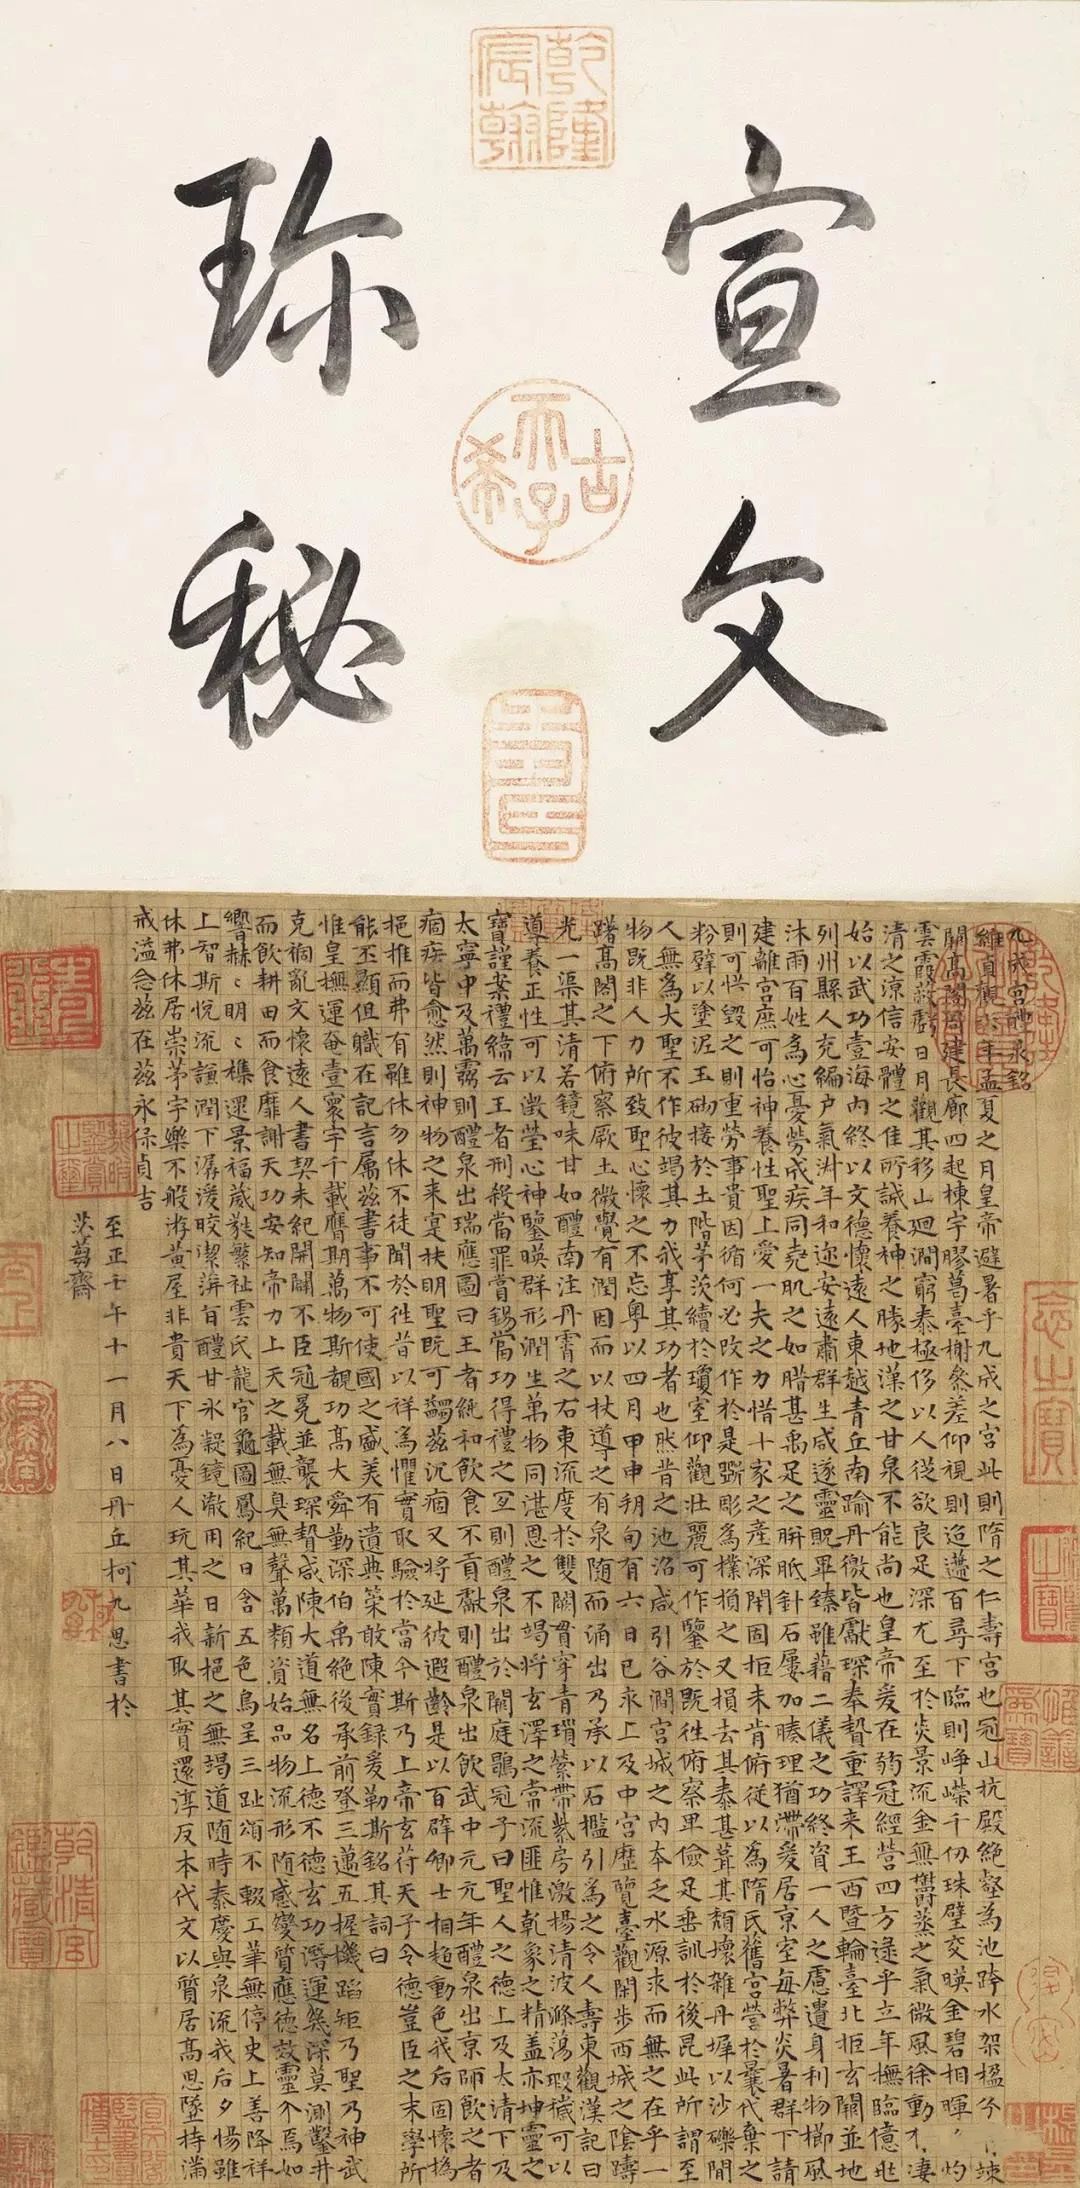 乾隆宸翰
宣文
珎秘
古希天子
九成宮醴泉銘
維貞觀六年孟夏之月皇帝避暑乎九成之宮此則隋之仁壽宮也冠山抗殿絕壑為池跨水架楹分巖竦
闕高閣周建長廊四起棟宇膠葛臺榭參差仰視則迢遰百尋下臨則崢嶸千仞珠璧交暎金碧相暉照灼
雲霞蔽虧日月觀其移山廻澗窮泰極侈以人從欲良足深尤至於炎景流金無鬱蒸之氣微風徐動有淒
清之涼信安體之佳所誠養神之勝地漢之甘泉不能尚也皇帝爰在弱冠經營四方逮乎立年撫臨億兆
始以武功壹海內終以文德懷遠人東越青丘南踰丹徼皆獻琛奉贄重譯来王西暨輪臺北拒玄闕並地
列州縣人充編户氣淑年和迩安遠肅群生咸遂靈貺畢臻雖藉二儀之功終資一人之慮遺身利物櫛風
沐雨百姓為心憂勞成疾同堯肌之如腊甚禹足之胼胝針石屢加腠理猶滯爰居京室每弊炎暑群下請
建離宮庶可怡神養性聖上愛一夫之力惜十家之產深閉固拒未肯俯從以為隋氏舊宮營於曩代棄之
則可惜毀之則重勞事貴因循何必改作於是斲彫為樸損之又損去其泰甚葺其頹壞雜丹墀以沙礫間
粉壁以塗泥玉砌接於土階茅茨續於瓊室仰觀壯麗可作鑒於既往俯察卑儉足垂訓於後昆此所謂至
人無為大聖不作彼竭其力我享其功者也然昔之池沼咸引谷澗宮城之內本乏水源求而無之在乎一
物既非人力所致聖心懷之不忘粵以四月甲申朔旬有六日已亥上及中宮歷覽臺觀閑步西城之陰躊
躇高閣之下俯察厥土微覺有潤因而以杖導之有泉隨而涌出乃承以石檻引為之令人壽東觀漢記曰
光一渠其清若鏡味甘如醴南注丹霄之右東流度於雙闕貫穿青瑣縈帶紫房激揚清波滌蕩瑕穢可以
導養正性可以澂瑩心神鑒暎群形潤生萬物同湛恩之不竭將玄澤之常流匪惟乾象之精蓋亦坤靈之
寶謹案禮緯云王者刑殺當罪賞錫當功得禮之宜則醴泉出於闕庭鶡冠子曰聖人之德上及太清下及
太寧中及萬靈則醴泉出瑞應圖曰王者純和飲食不貢獻則醴泉出飲武中元元年醴泉出京師飲之者
痼疾皆愈然則神物之来寔扶明聖既可蠲茲沉痼又將延彼遐齡是以百辟卿士相趨動色我后固懷撝
挹推而弗有雖休勿休不徒聞於往昔以祥為懼實取驗於當今斯乃上帝玄符天子令德豈臣之末學所
能丕顯但職在記言属茲書事不可使國之盛美有遺典策敢陳實録爰勒斯銘其詞曰
惟皇撫運奄壹寰宇千載膺期萬物斯覩功高大舜勤深伯禹絕後承前登三邁五握機蹈矩乃聖乃神武
克禍亂文懷遠人書契未紀開闢不臣冠冕並襲琛贄咸陳大道無名上德不德玄功潛運幾深莫測鑿井
而飲耕田而食靡謝天功安知帝力上天之載無臭無聲萬類資始品物流形隨感變質應德效靈介焉如
響赫〻明〻雜遝景福葳蕤繁祉雲氏龍官龜圖鳳紀日含五色烏呈三趾頌不輟工筆無停史上善降祥
上智斯悅流謙潤下潺湲皎潔蓱旨醴甘冰凝鏡澈用之日新挹之無竭道隨時泰慶與泉流我后夕惕雖
休弗休居崇茅宇樂不般游黄屋非貴天下為憂人玩其華我取其實還淳反本代文以質居高思墜持滿
戒溢念茲在茲永保貞吉
至正壬午十一月八日丹丘柯九思書於
茨蒭齋